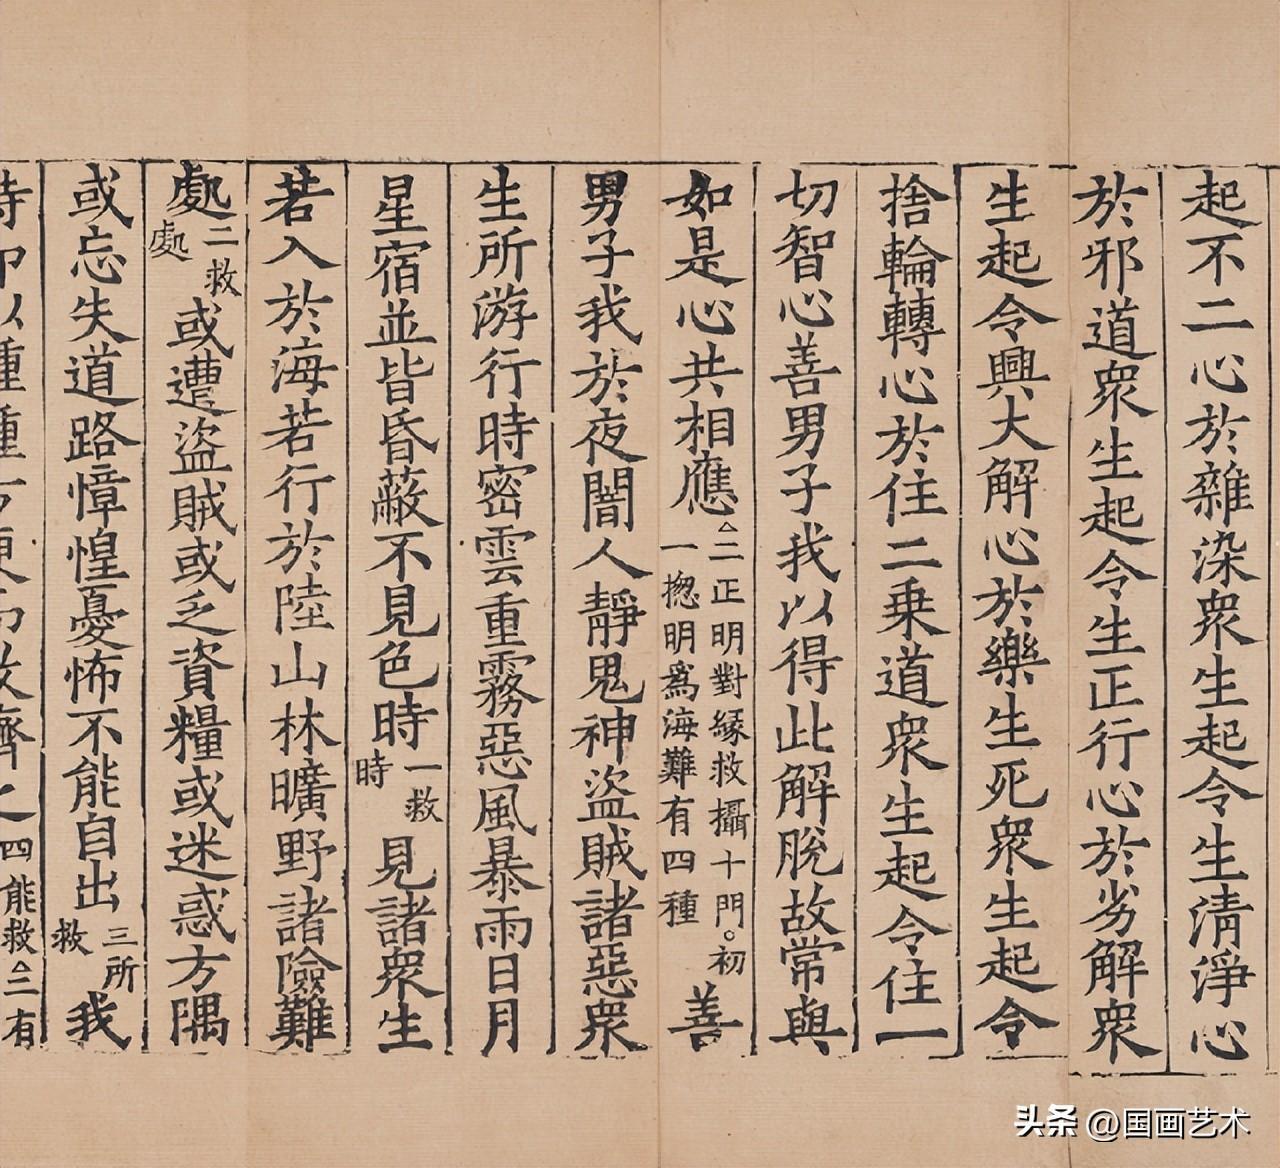 起不二心於雜染衆生起令生清淨心
於邪道衆生起令生正行心於劣解衆
生起令興大解心於樂生死衆生起令
捨輪轉心於住二乗道衆生起令住一
切智心善男子我以得此解脫故常與
如是心共相應二正明對縁救攝十門。初一揔明為海難有四種善
男子我於夜闇人靜鬼神盜賊諸惡衆
生所游行時密雲重霧惡風暴雨日月
星宿並皆昏蔽不見色時一救時見諸衆生
若入於海若行於陸山林曠野諸險難
處二救處或遭盜賊或乏資糧或迷惑方隅
或忘失道路慞惶憂怖不能自出三所救我
時即以種種方便而救濟之四能救二有
头条 @国画艺术